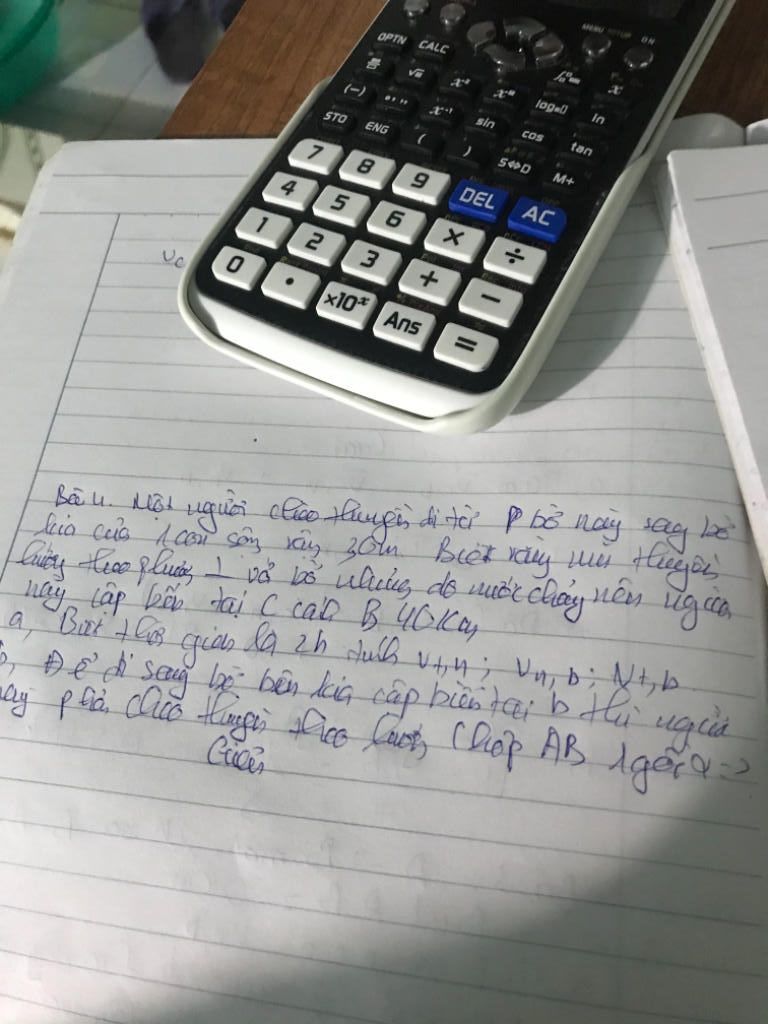 MENU SETUP ON
OPTN CALC x
(-) x² log ln
STO ENG ( ) sin cos tan
S⇔D M+
7 8 9 DEL AC
4 5 6 × ÷
1 2 3 + −
0 • ×10ˣ Ans =
Bài 4. Một người chèo thuyền đi từ bờ này sang bờ
kia của 1 con sông rộng 30m Biết rằng mũi thuyền
hướng theo phương ⊥ với bờ nhưng do nước chảy nên người
này cập bến tại C cách B 40km
a, Biết thời gian là 2h tính Vt,n ; Vn,b ; Vt,b
b, Để đi sang bờ bên kia cập bến tại b thì người
này phải chèo thuyền theo hướng (hợp AB 1 góc α =>